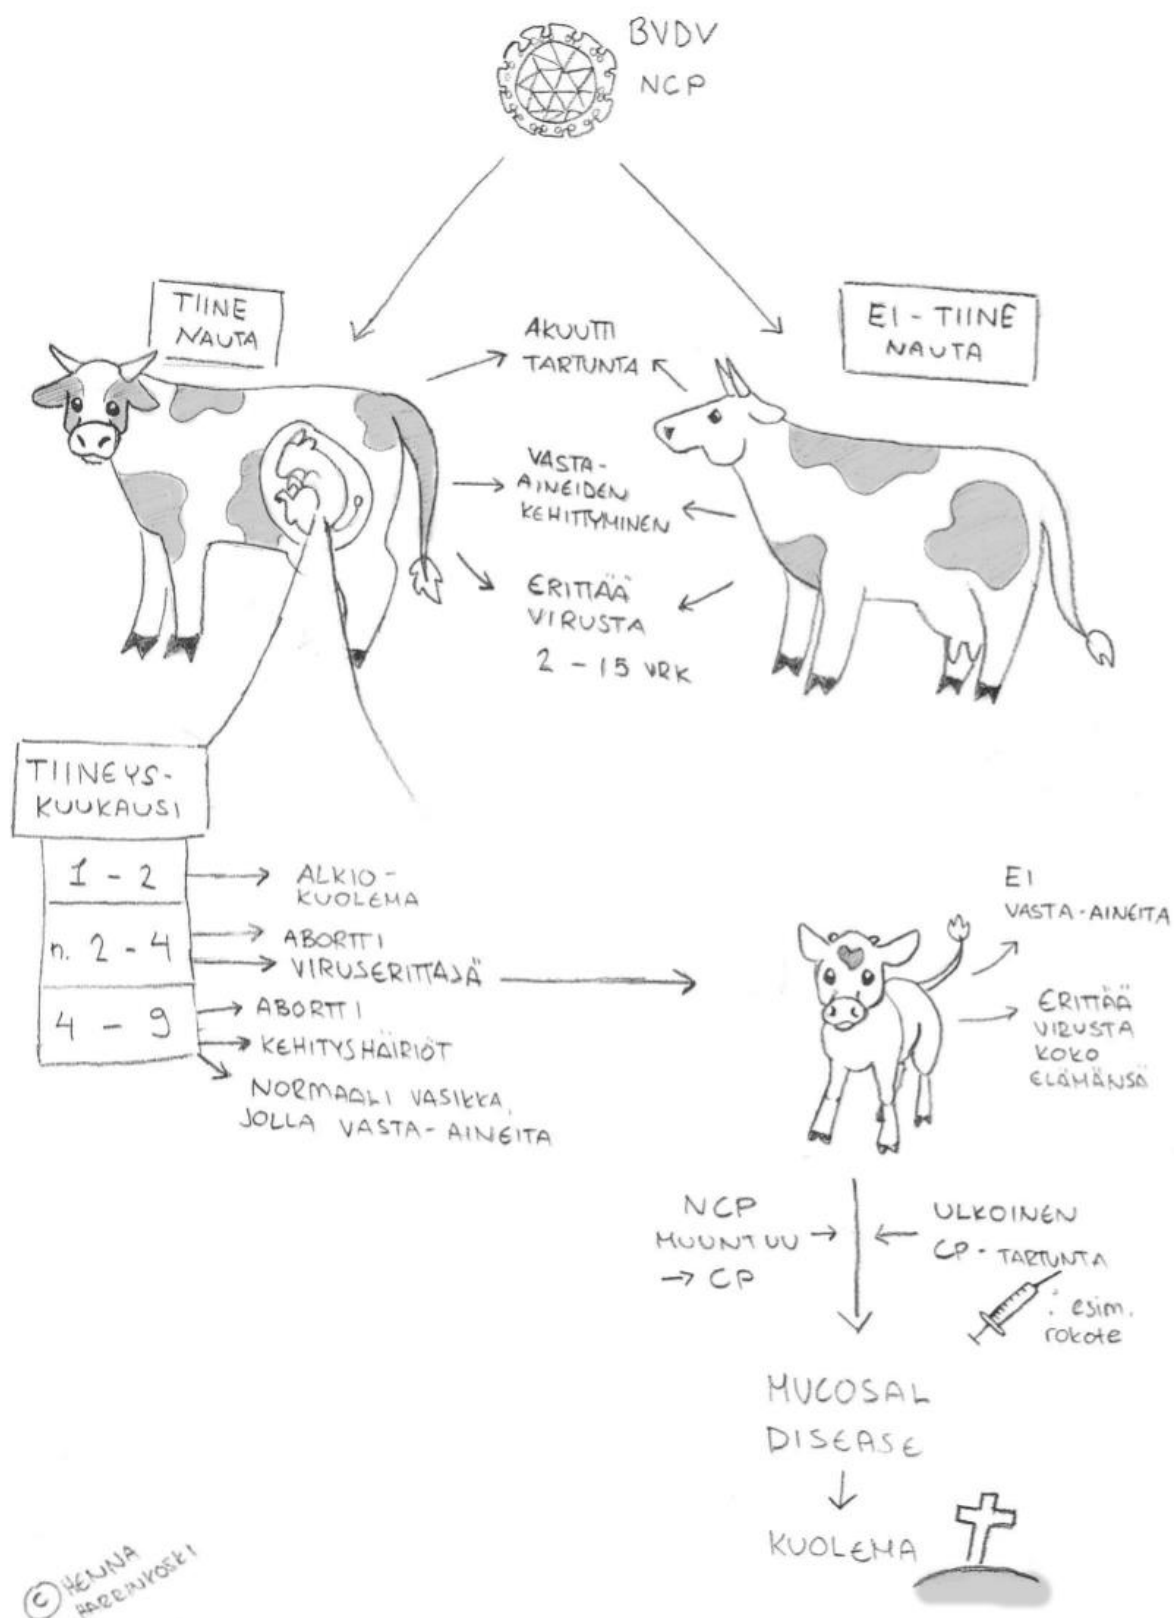 BVDV
NCP
TIINE
NAUTA
AKUUTTI
TARTUNTA
EI - TIINE
NAUTA
VASTA-
AINEIDEN
KEHITTYMINEN
ERITTÄÄ
VIRUSTA
2 - 15 VRK
TIINEYS-
KUUKAUSI
1 - 2
ALKIO-
KUOLEMA
n. 2 - 4
ABORTTI
VIRUSERITTÄJÄ
4 - 9
ABORTTI
KEHITYSHÄIRIÖT
NORMAALI VASIKKA,
JOLLA VASTA-AINEITA
EI
VASTA-AINEITA
ERITTÄÄ
VIRUSTA
KOKO
ELÄMÄNSÄ
NCP
MUUNTUU
→ CP
ULKOINEN
CP - TARTUNTA
: esim.
rokote
MUCOSAL
DISEASE
KUOLEMA
© HENNA
HARRINKOSKI